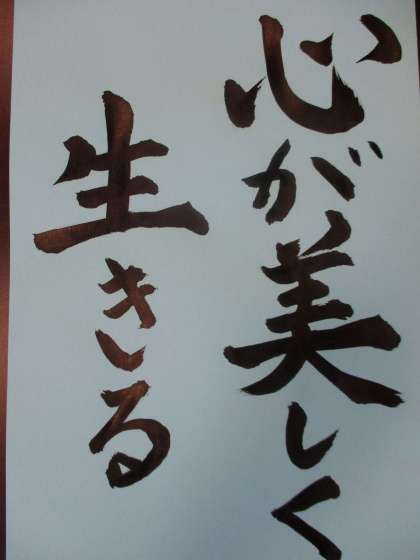 心が美しく
生きる